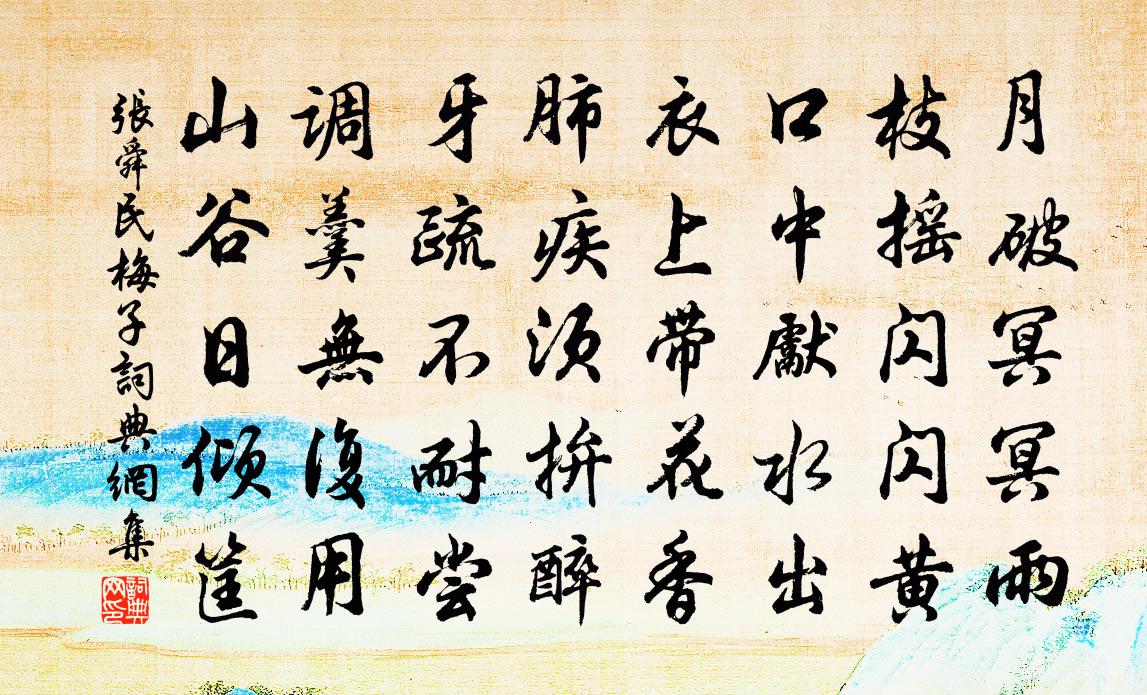 月破冥冥雨
枝摇闪闪黄
口中獻水出
衣上带花香
肺疾须拚醉
牙疏不耐尝
调羹無復用
山谷日倾筐
張舜民梅子詞典網集
詞典网印